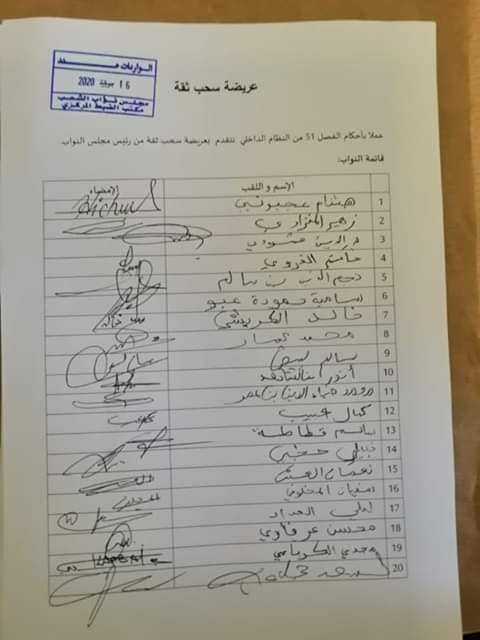 الواردات عدد
16 جويلية 2020
مجلس نواب الشعب
مكتب الضبط المركزي
عريضة سحب ثقة
عملا بأحكام الفصل 51 من النظام الداخلي نتقدم بعريضة سحب ثقة من رئيس مجلس النواب.
قائمة النواب:
الإسم و اللقب الإمضاء
1 هشام عجبوني Hichem
2 زهير المغزاوي
3
4 حاتم
5 نجم الدين بن سالم
6 سامية حمودة عبو
7 خالد الكريشي
8 محمد عمار
9 سالم لبيض
10 أنور بالشاهد
11
12 كمال حبيب
13 باسم قطاطة
14 نبيل حجي
15 نعمان العش
16 سفيان المخلوفي
17 ليلى الحداد
18 محسن عرفاوي
19 مجدي الكرباعي
20